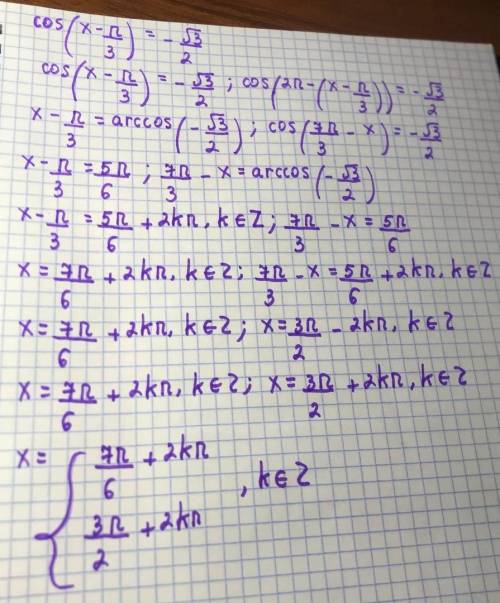 cos(x - π/3) = -√3/2
cos(x - π/3) = -√3/2 ; cos(2π - (x - π/3)) = -√3/2
x - π/3 = arccos(-√3/2) ; cos(7π/3 - x) = -√3/2
x - π/3 = 5π/6 ; 7π/3 - x = arccos(-√3/2)
x - π/3 = 5π/6 + 2kπ, k∈Z ; 7π/3 - x = 5π/6
x = 7π/6 + 2kπ, k∈Z ; 7π/3 - x = 5π/6 + 2kπ, k∈Z
x = 7π/6 + 2kπ, k∈Z ; x = 3π/2 - 2kπ, k∈Z
x = 7π/6 + 2kπ, k∈Z ; x = 3π/2 + 2kπ, k∈Z
x = { 7π/6 + 2kπ
, k∈Z
3π/2 + 2kπ